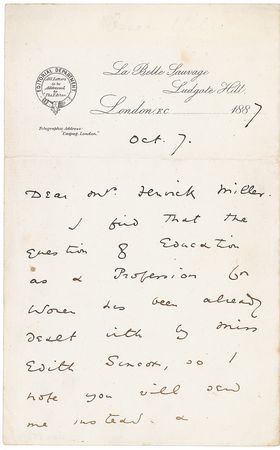 EDITORIAL DEPARTMENT
All Letters
to be
Addressed
to
La Belle Sauvage
Ludgate Hill,
London, E.C. 1887
Telegraphic Address:
"Caspeg, London."
Oct. 7.
Dear Mrs. Fenwick Miller.
I find that the
question of Education
as a Profession for
Women has been already
dealt with by Miss
Edith Simcox, so I
hope you will send
me instead, a